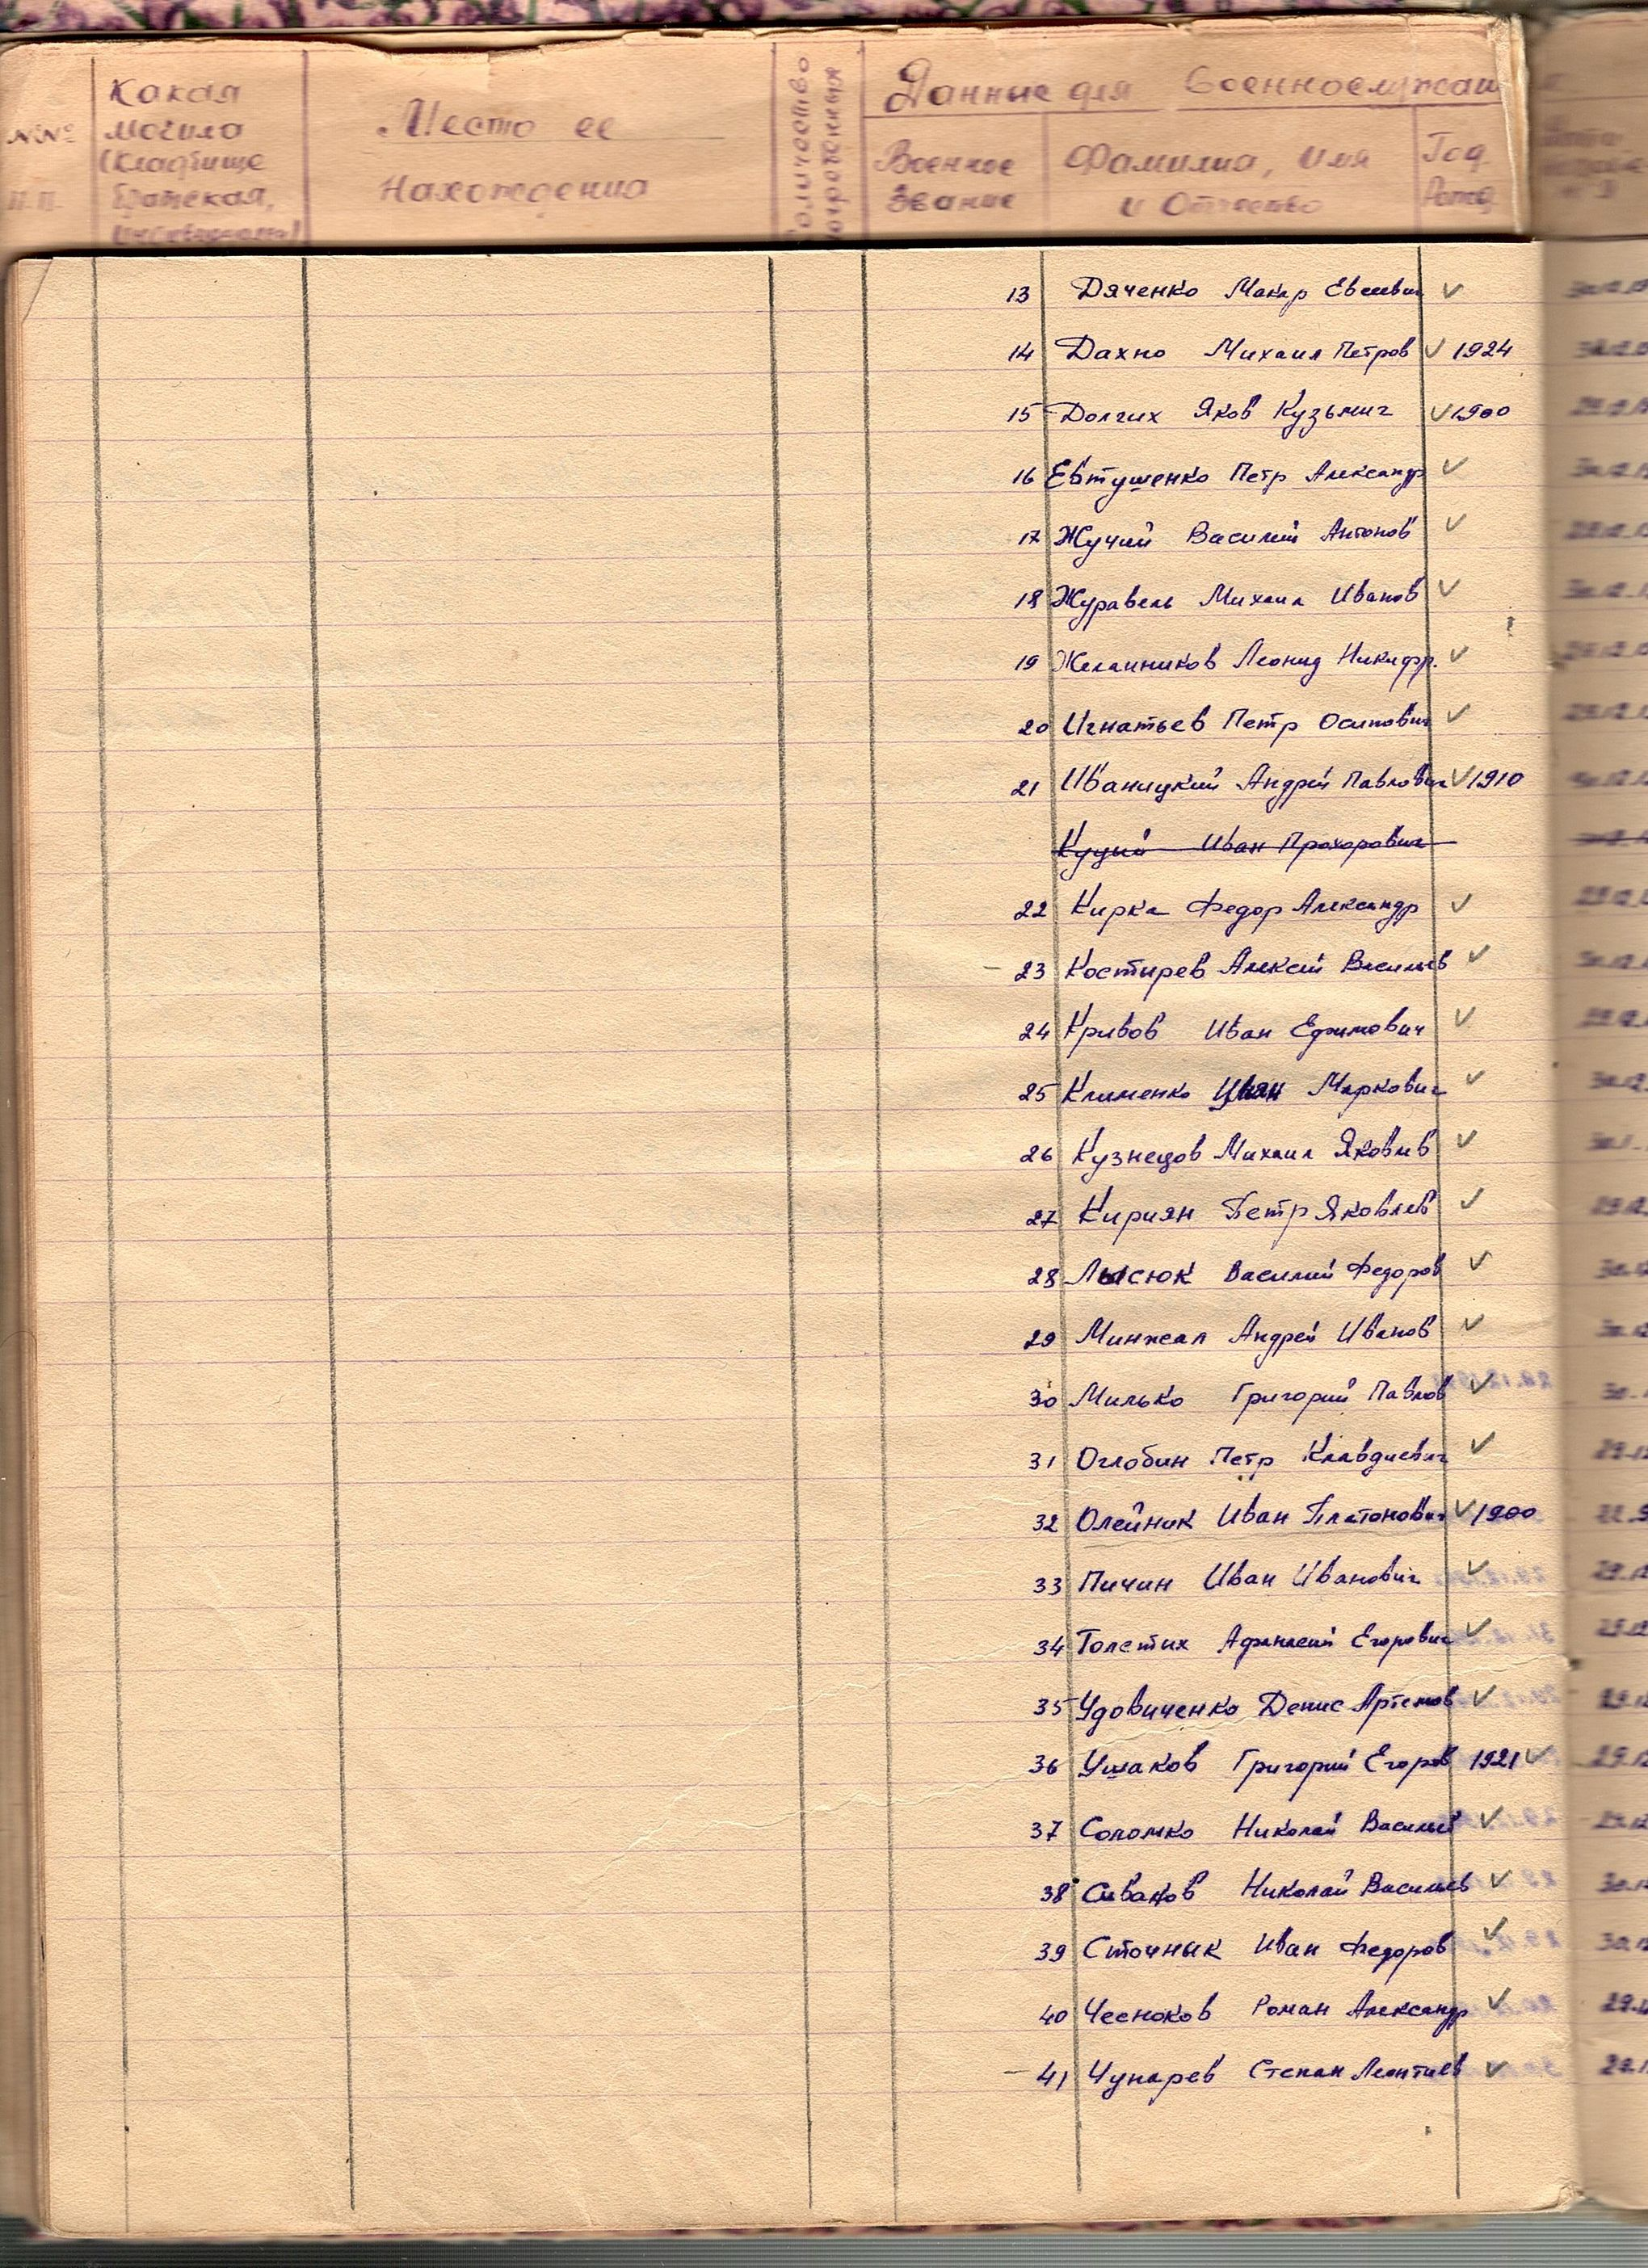 №№ п.п.
Какая могила (кладбище братская, индивидуальн.)
Место ее нахождения
Количество погребенных
Данные для военнослужащ
Военное звание
Фамилия, имя и отчество
Год рожд
13 Дяченко Макар Евсеевич ✓
14 Дахно Михаил Петров ✓ 1924
15 Долгих Яков Кузьмич ✓ 1900
16 Евтушенко Петр Александр ✓
17 Жучий Василий Антонов ✓
18 Журавель Михаил Иванов ✓
19 Желанников Леонид Никифр. ✓
20 Игнатьев Петр Осипович ✓
21 Иваницкий Андрей Павлович ✓ 1910
Куций Иван Прохорович
22 Кирка Федор Александр ✓
23 Костырев Алексей Васильев ✓
24 Кривов Иван Ефимович ✓
25 Клименко Иван Маркович ✓
26 Кузнецов Михаил Яковлев ✓
27 Кириян Петр Яковлев ✓
28 Лысюк Василий Федоров ✓
29 Минжал Андрей Иванов ✓
30 Милько Григорий Павлов ✓
31 Оглобин Петр Клавдиевич ✓
32 Олейник Иван Платонович ✓ 1900
33 Пичин Иван Иванович ✓
34 Толстих Афанасий Егорович ✓
35 Удовиченко Денис Артемов ✓
36 Ушаков Григорий Егоров 1921 ✓
37 Соломко Николай Васильев ✓
38 Сиваков Николай Васильев ✓
39 Сточнык Иван Федоров ✓
40 Чесноков Роман Александр ✓
41 Чупарев Степан Леонтиев ✓